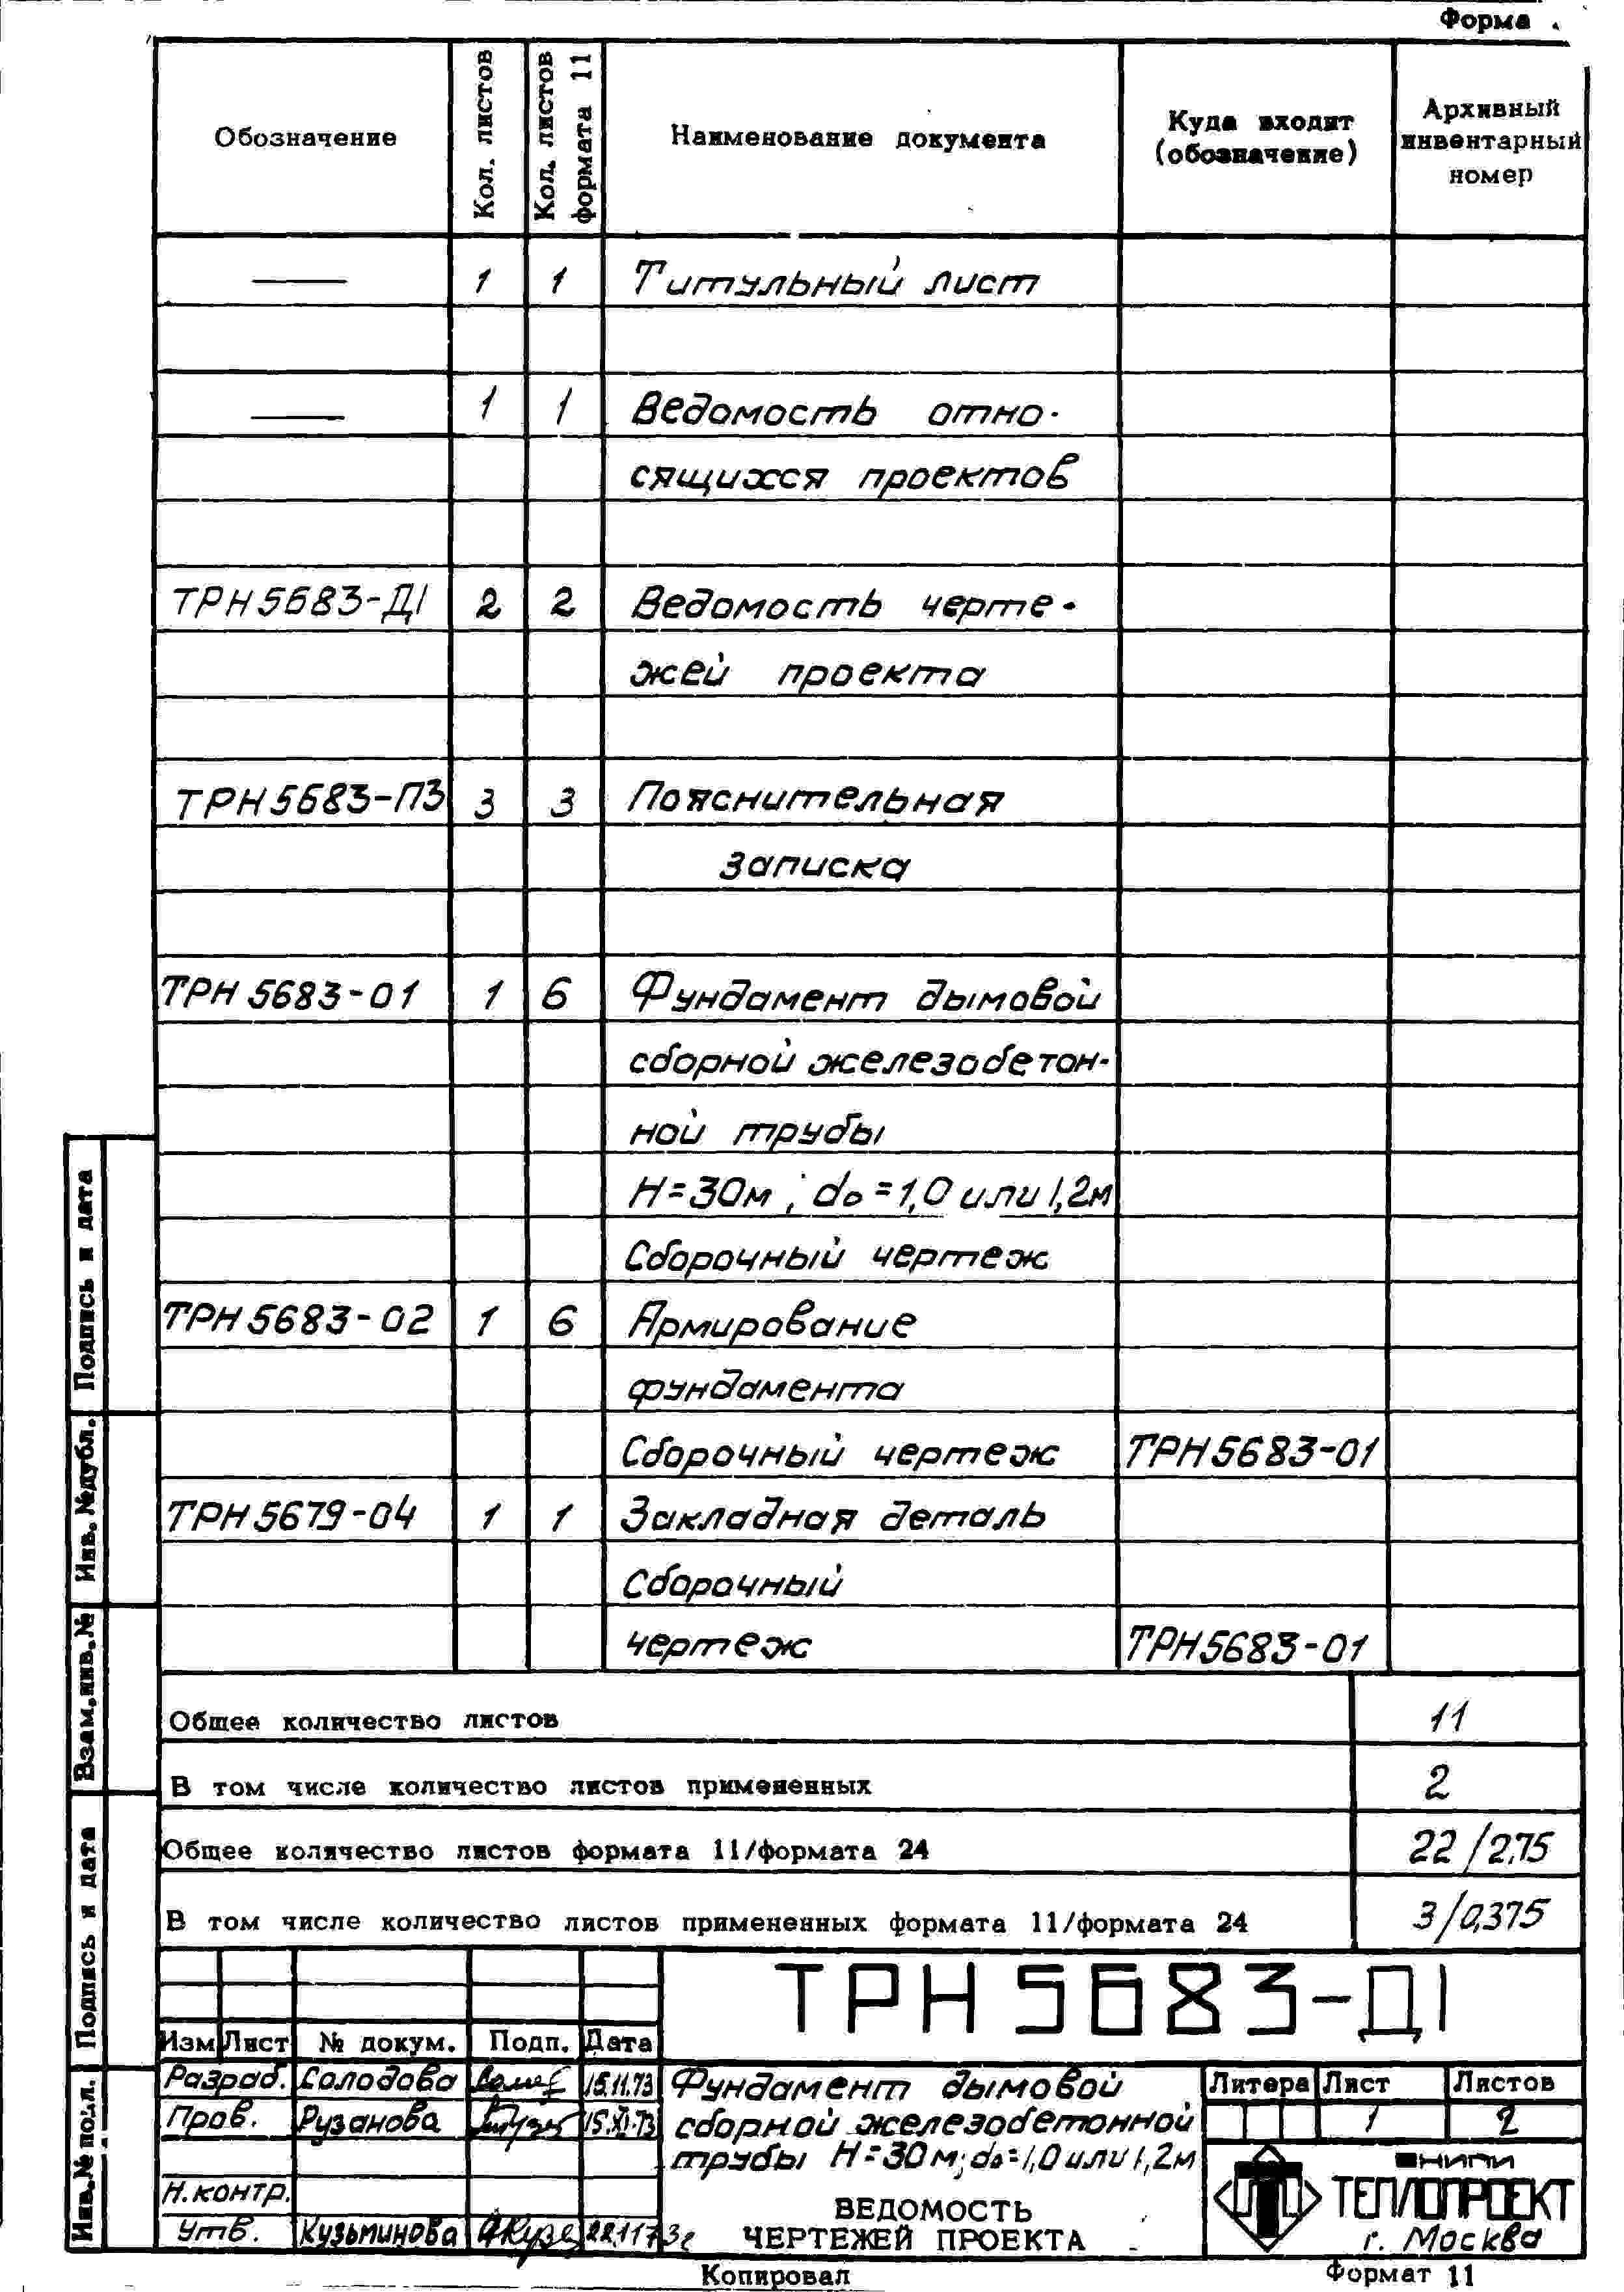 Форма
Обозначение
Кол. листов
Кол. листов формата 11
Наименование документа
Куда входит
(обозначение)
Архивный
инвентарный
номер
— 1 1 Титульный лист
— 1 1 Ведомость отно-
сящихся проектов
ТРН5683-Д1 2 2 Ведомость черте-
жей проекта
ТРН5683-ПЗ 3 3 Пояснительная
записка
ТРН 5683-01 1 6 Фундамент дымовой
сборной железобетон-
ной трубы
Н=30м; do=1,0 или 1,2м
Сборочный чертеж
ТРН5683-02 1 6 Армирование
фундамента
Сборочный чертеж ТРН5683-01
ТРН5679-04 1 1 Закладная деталь
Сборочный
чертеж ТРН5683-01
Общее количество листов 11
В том числе количество листов примененных 2
Общее количество листов формата 11/формата 24 22/2,75
В том числе количество листов примененных формата 11/формата 24 3/0,375
Подпись и дата
Инв.№дубл.
Взам.инв.№
Подпись и дата
Инв.№ подл.
ТРН 5683-Д1
Изм Лист № докум. Подп. Дата
Разраб. Солодова 15.11.73
Пров. Рузанова 15.XI.73
Н.контр.
Утв. Кузьминова 22.11 73г
Фундамент дымовой
сборной железобетонной
трубы Н=30м; do=1,0 или 1,2м
ВЕДОМОСТЬ
ЧЕРТЕЖЕЙ ПРОЕКТА
Литера Лист Листов
1 2
ВНИПИ
ТЕПЛОПРОЕКТ
г. Москва
Копировал
Формат 11